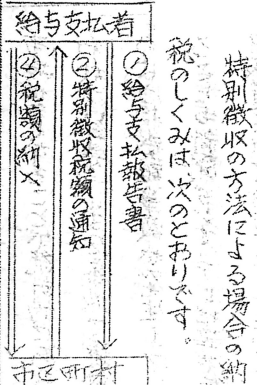 特別徴収の方法による場合の納
税のしくみは、次のとおりです。
給与支払者
①給与支払報告書
②特別徴収税額の通知
④税額の納入
市区町村